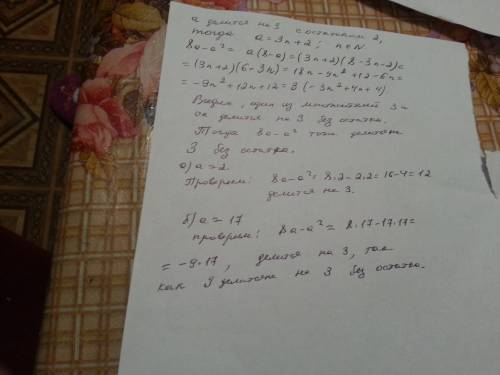 а делится на 3 с остатком 2,
тогда a = 3n+2; n∈N.
8a-a² = a(8-a) = (3n+2)(8-3n-2)=
= (3n+2)(6-3n) = 18n-9n²+12-6n=
= -9n²+12n+12 = 3(-3n²+4n+4)
Видим, один из множителей 3 -
он делится на 3 без остатка.
Тогда 8a-a² тоже делится на
3 без остатка.
а) a = 2.
Проверим: 8a-a² = 8·2-2·2 = 16-4 = 12
делится на 3.
б) a = 17
проверим: 8a-a² = 8·17-17·17=
= -9·17, делится на 3, так
как 9 делится на 3 без остатка.